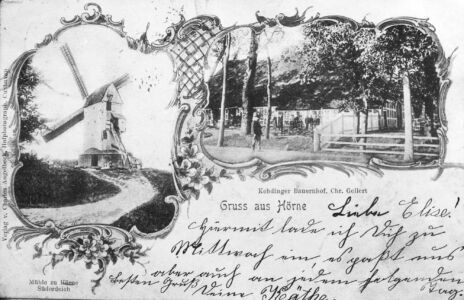 Kehdinger Bauernhof, Chr. Gellert
Gruss aus Hörne
Liebe Elise!
Hiermit lade ich Dich zu
Mittwoch ein, es paßt uns
aber auch an jedem folgenden
Tag.
Besten Gruß
Deine Käthe.
Mühle zu Hörne
Süderdeich
Verlag v.